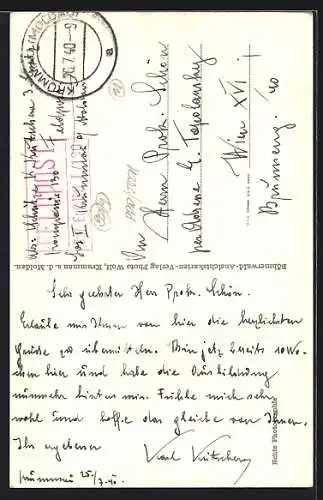 KRUMMAU (MOLDAU)
26.7.40-9
a
Abs: Schütze K. Kutschera 3.
Kompanie
Krummau a/Moldau
Feldpost
FELDPOST
An Herrn Prok. Schön
per Adresse G. Topolansky
Wien XVI.
40
Böhmerwald-Ansichtskarten-Verlag Photo Wolf, Krummau a. d. Moldau.
Sehr geehrter Herr Prok. Schön.
Erlaube mir Ihnen von hier die herzlichsten
Grüße zu übermitteln. Bin jetzt bereits 10 Wo-
chen hier und habe die Ausbildung
nunmehr hinter mir. Fühle mich sehr
wohl und hoffe das gleiche von Ihnen.
Ihr ergebener
Karl Kutschera
Krummau 25./7.40.
Echte Photographie